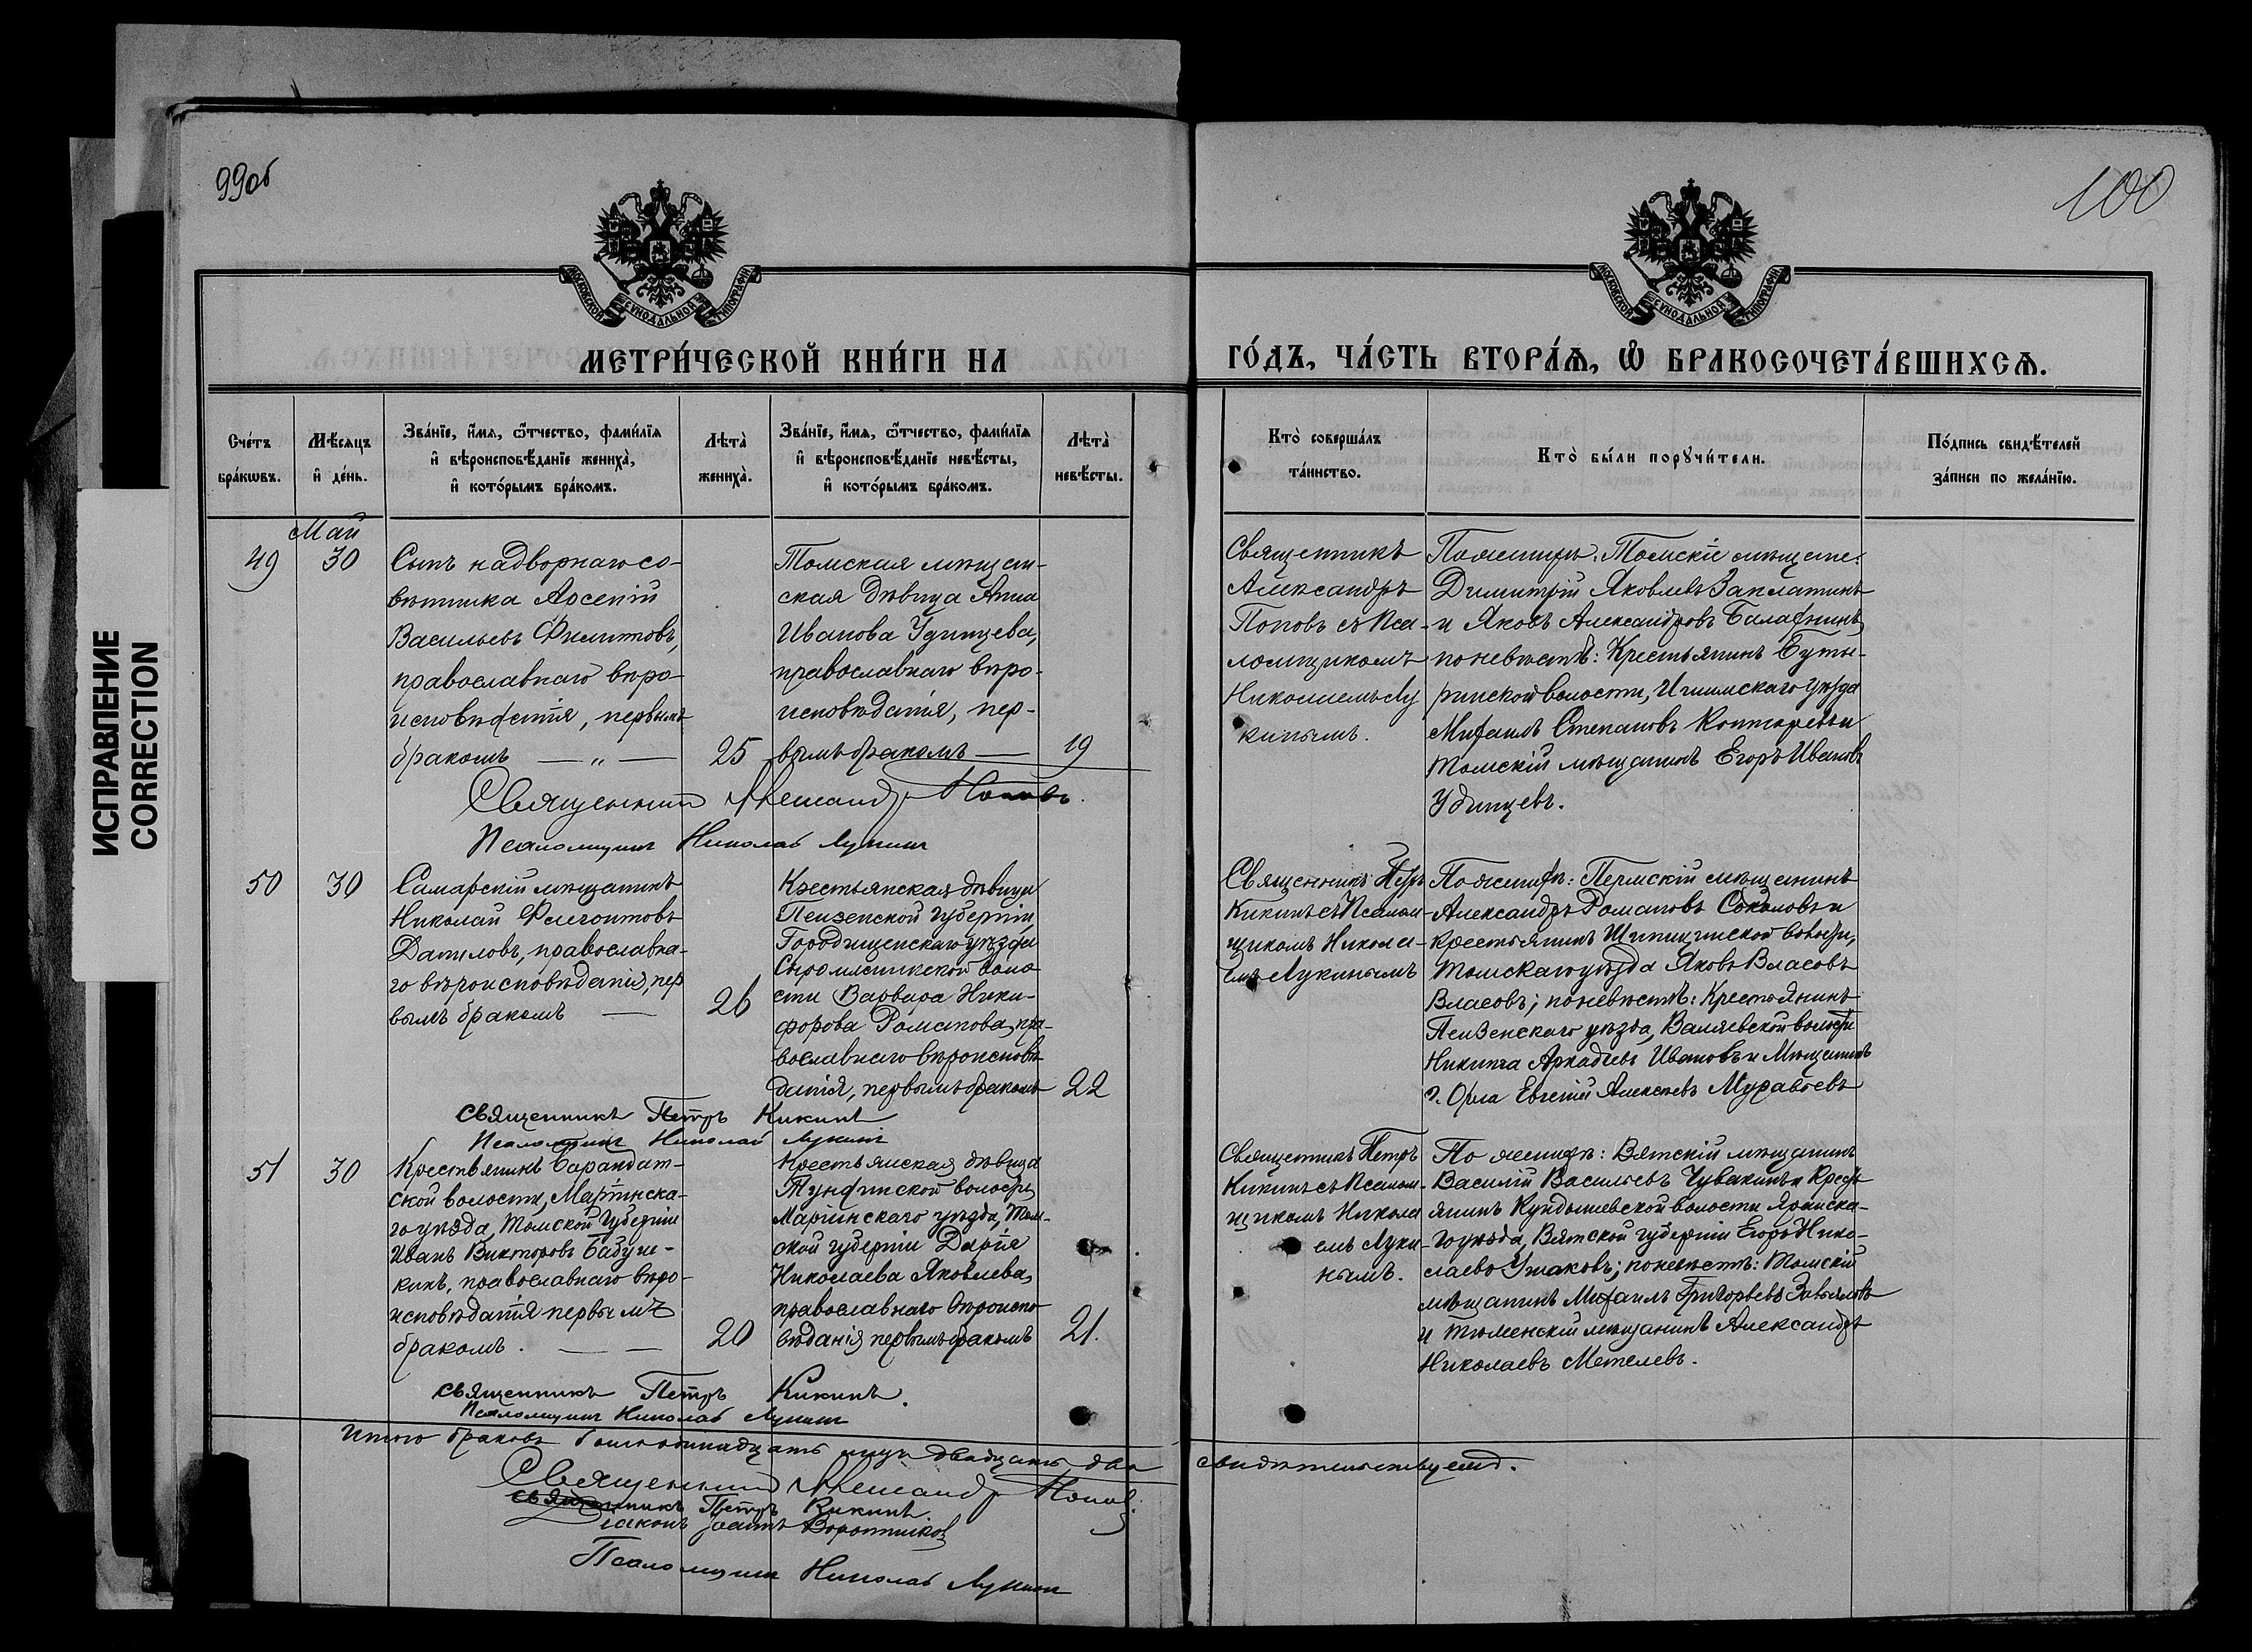 99об
100
ИСПРАВЛЕНИЕ
CORRECTION
МОСКОВСКОЙ СѴНОДАЛЬНОЙ ТИПОГРАФІИ
МОСКОВСКОЙ СѴНОДАЛЬНОЙ ТИПОГРАФІИ
МЕТРИ́ЧЕСКОЙ КНИ́ГИ НА
ГО́ДЪ, ЧА́СТЬ ВТОРА́Ѧ, Ѽ БРАКОСОЧЕТА́ВШИХСѦ.
Сче́тъ
бра́кѡвъ.
Мѣ́сяцъ
и҆ де́нь.
Зва́нїе, и҆́мѧ, ѻ҆́тчество, фами́лїѧ
и҆ вѣроисповѣ́данїе жениха̀,
и҆ кото́рымъ бра́комъ.
Лѣта̀
жениха̀.
Зва́нїе, и҆́мѧ, ѻ҆́тчество, фами́лїѧ
и҆ вѣроисповѣ́данїе невѣ́сты,
и҆ кото́рымъ бра́комъ.
Лѣта̀
невѣ́сты.
Кто̀ соверша́лъ
та́инство.
Кто̀ бы́ли порꙋчи́тели.
По́дпись свидѣ́телей
за́писи по жела́нїю.
Май
49
30
Сынъ надворнаго со-
вѣтника Арсеній
Васильевъ Филитовъ,
православнаго вѣро-
исповѣданія, первымъ
бракомъ — „ —
25
Томская мѣщан-
ская дѣвица Анна
Иванова Удинцева,
православнаго вѣро-
исповѣданія, пер-
вымъ бракомъ —
19
Священникъ
Александръ
Поповъ съ Пса-
ломщикомъ
Николаемъ Лу
кинымъ.
По женихѣ: Томскіе мѣщане:
Димитрій Яковлевъ Заплатинъ
и Яковъ Александровъ Балафнинъ,
по невѣстѣ: Крестьянинъ Буты-
ринской волости, Ишимскаго уѣзда
Михаилъ Степановъ и
Томскій мѣщанинъ Егоръ Ивановъ
Удинцевъ.
Священникъ Александръ Поповъ.
Псаломщикъ Николай Лукинъ
50
30
Самарскій мѣщанинъ
Николай Флегонтовъ
Даниловъ, православна-
го вѣроисповѣданія, пер
вымъ бракомъ —
26
Крестьянская дѣвица
Пензенской губерніи,
Городищенскаго уѣзда
Сыромясинской воло
сти Варвара Ники-
форова Романова, пра-
вославнаго вѣроисповѣ
данія, первымъ бракомъ
22
Священникъ Петръ
Кикинъ съ Псалом-
щикомъ Никола-
емъ Лукинымъ
По женихѣ: Пермскій мѣщанинъ
Александръ Романовъ Соколовъ и
крестьянинъ Шипицинской волости,
Томскаго уѣзда Яковъ Власовъ
Власовъ; по невѣстѣ: Крестьянинъ
Пензенскаго уѣзда, Валяевской волости
Никита Аркадіевъ Ивановъ и Мѣщанинъ
г. Орла Евгеній Алексѣевъ Муравьевъ
Священникъ Петръ Кикинъ
Псаломщикъ Николай Лукинъ
51
30
Крестьянинъ Барандат-
ской волости, Маріинска-
го уѣзда, Томской губерніи
Иванъ Викторовъ Бабуш-
кинъ, православнаго вѣро-
исповѣданія первымъ
бракомъ. — —
20
Крестьянская дѣвица
Тундинской волости
Маріинскаго уѣзда, Том-
ской губерніи Дарія
Николаева Яковлева,
православнаго вѣроиспо
вѣданія первымъ бракомъ
21.
Священникъ Петръ
Кикинъ съ Псалом-
щикомъ Никола
емъ Луки-
нымъ.
По женихѣ: Вятскій мѣщанинъ
Василій Васильевъ Чувакинъ и Кресть
янинъ Кундышевской волости Яранска-
го уѣзда, Вятской губерніи Егоръ Нико-
лаевъ Ушаковъ; по невѣстѣ: Томскій
мѣщанинъ Михаилъ Григорьевъ Завьяловъ
и Тюменскій мѣщанинъ Александръ
Николаевъ Метелевъ.
Священникъ Петръ Кикинъ.
Псаломщикъ Николай Лукинъ
Итого браковъ одиннадцать лицъ двадцать два
свидѣтельствуемъ.
Священникъ Александръ Поповъ
Священникъ Петръ Кикинъ.
Діаконъ Іоаннъ Воротниковъ
Псаломщикъ Николай Лукинъ